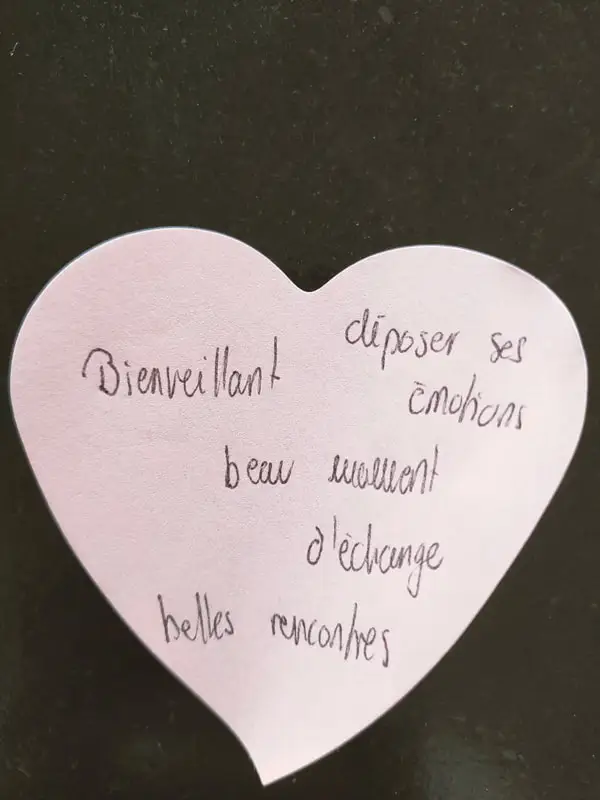 Bienveillant
déposer ses
émotions
beau moment
d'échange
belles rencontres